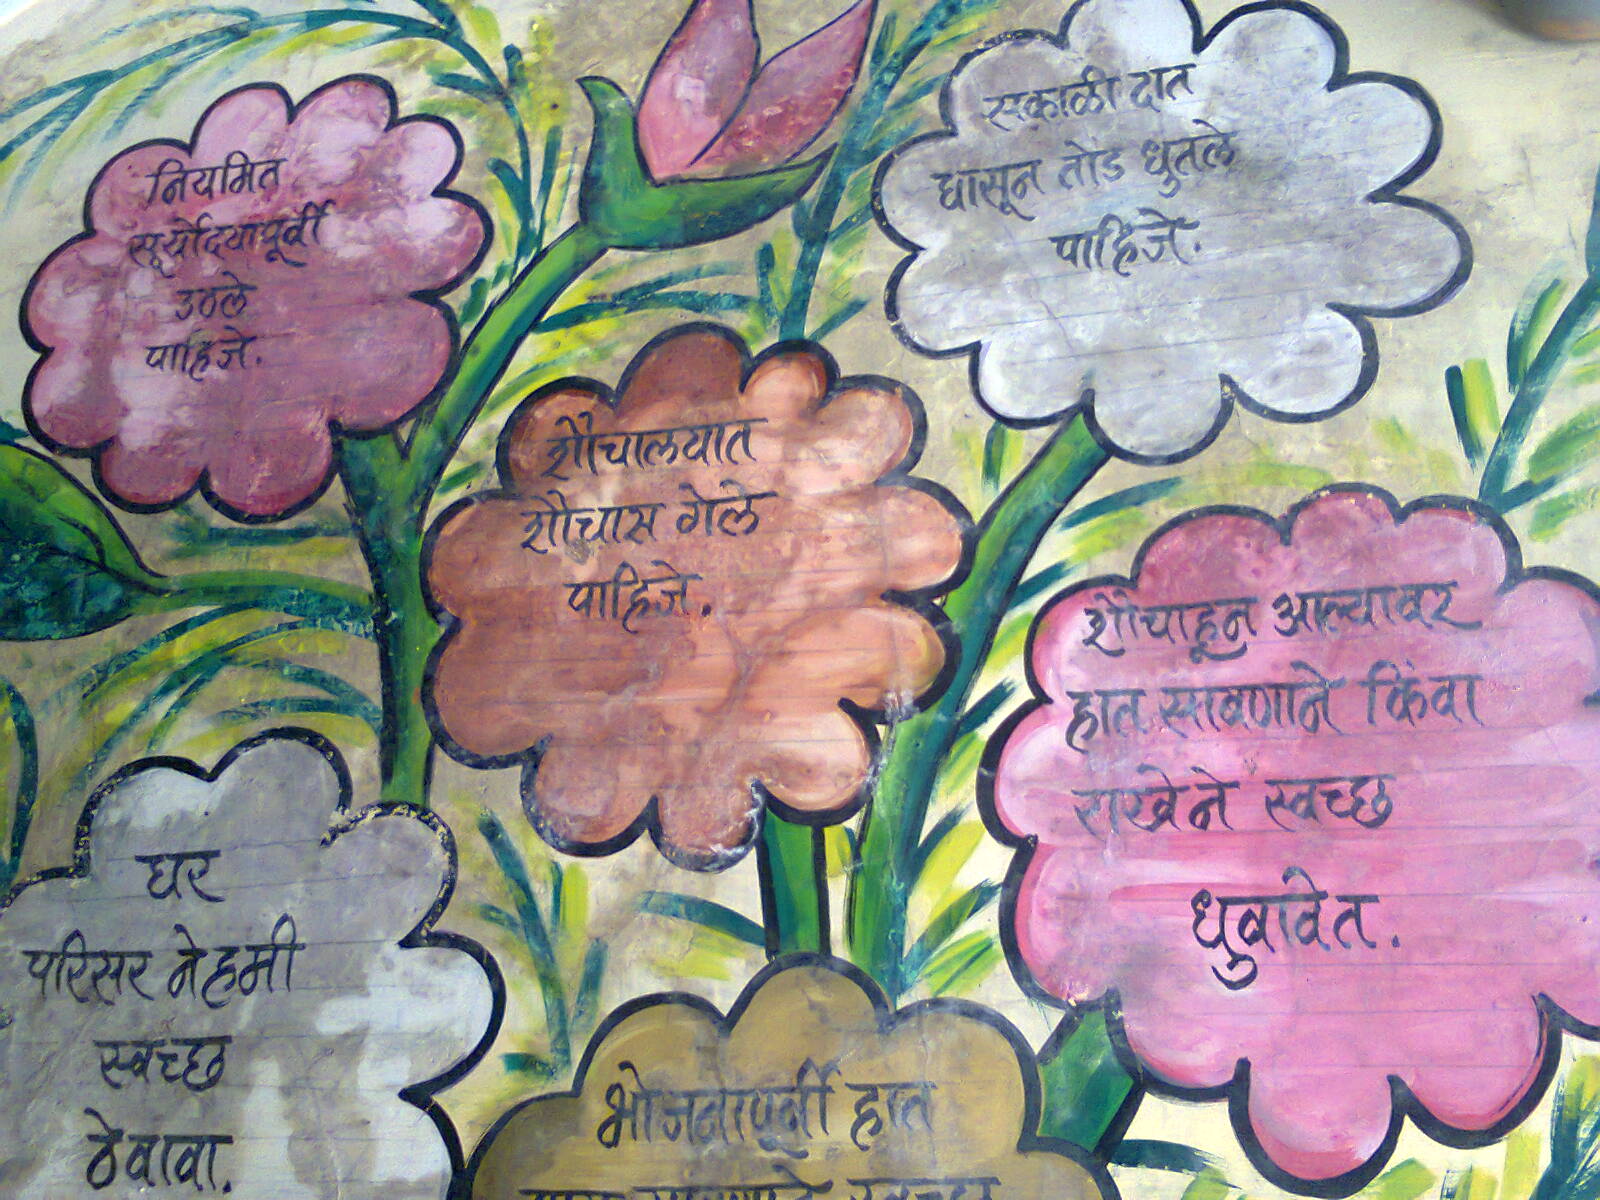 नियमित
सूर्योदयापूर्वी
उठले
पाहिजे.
सकाळी दात
घासून तोंड धुतले
पाहिजे.
शौचालयात
शौचास गेले
पाहिजे.
शौचाहून आल्यावर
हात साबणाने किंवा
राखेने स्वच्छ
धुवावेत.
घर
परिसर नेहमी
स्वच्छ
ठेवावा.
भोजनापूर्वी हात
स्वच्छ